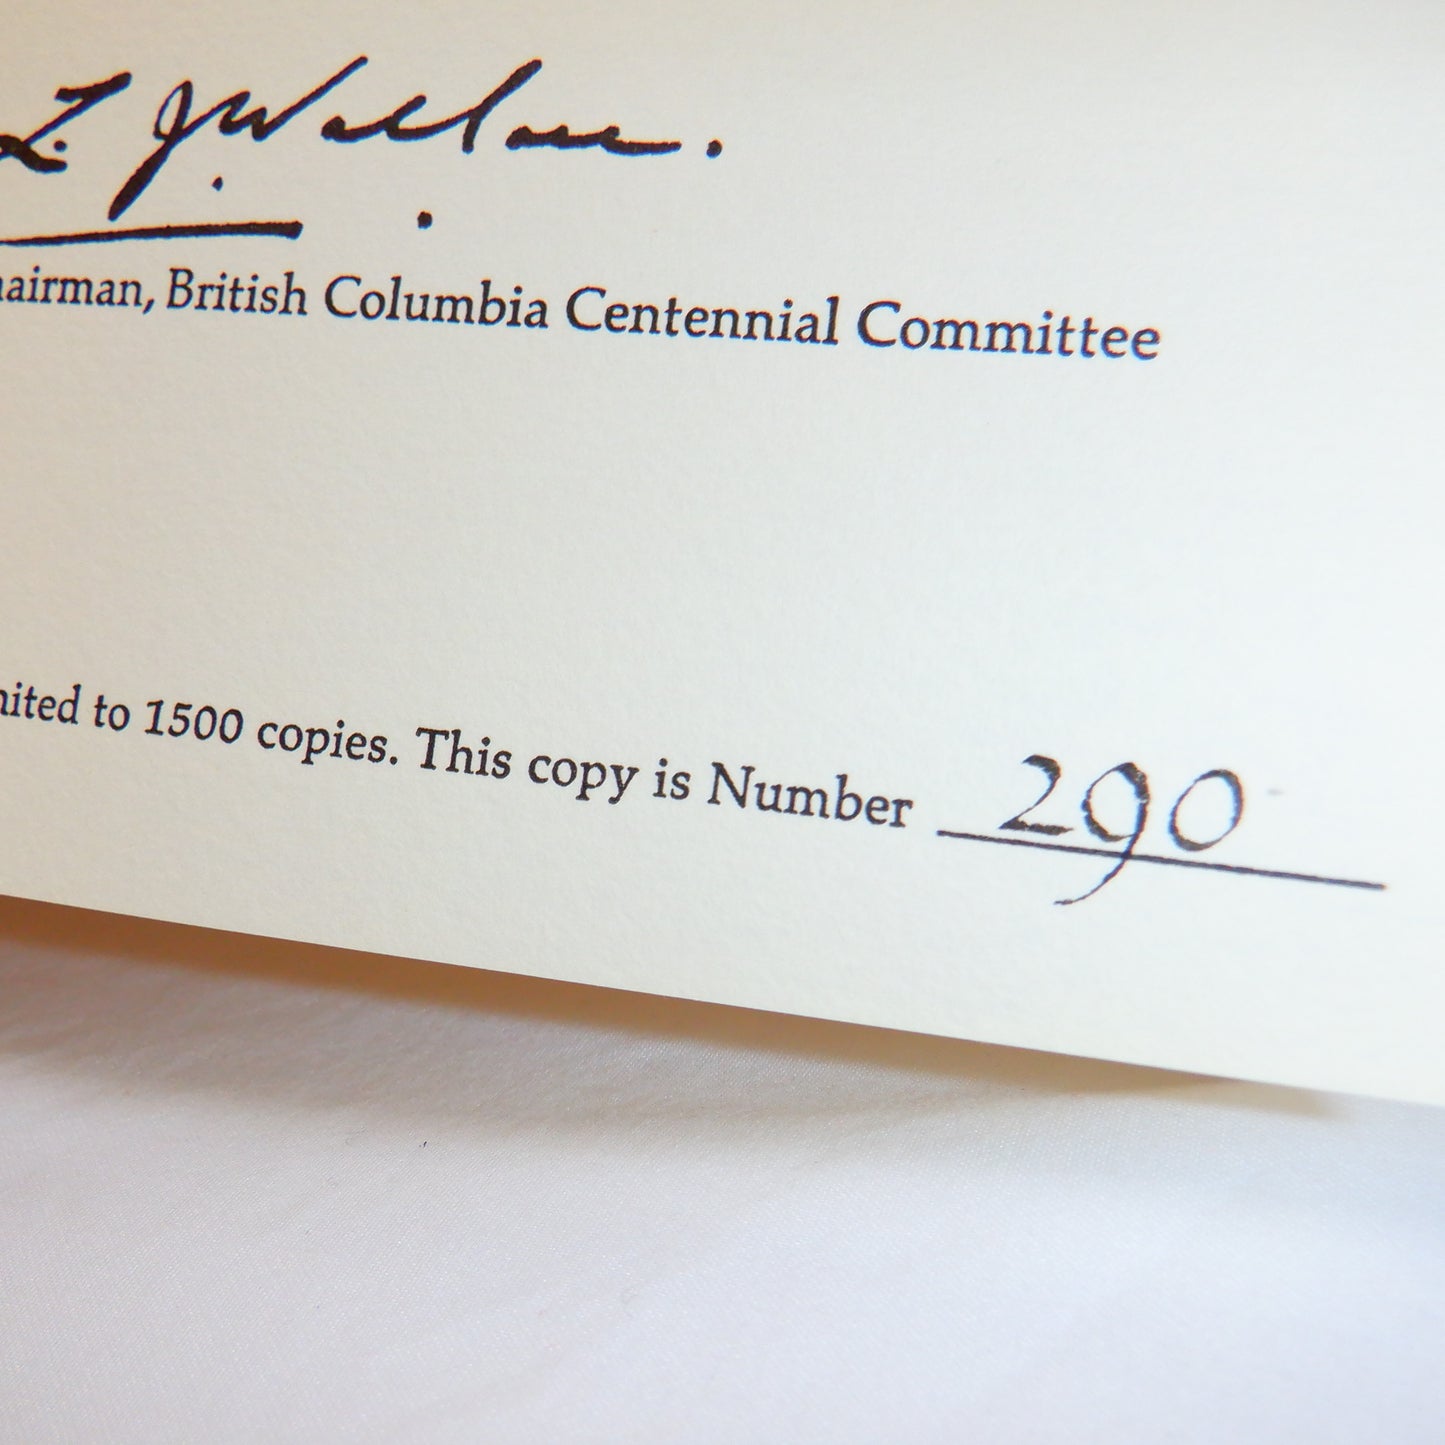 L. J. Wallace.
hairman, British Columbia Centennial Committee
nited to 1500 copies. This copy is Number 290